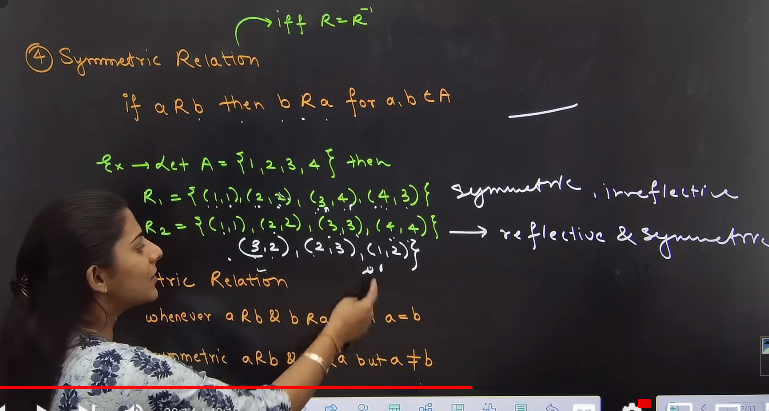 iff R = R⁻¹
④ Symmetric Relation
if a R b then b R a for a, b ∈ A
Ex → Let A = {1, 2, 3, 4} then
R₁ = {(1,1), (2,2), (3,4), (4,3)} symmetric, irreflective
R₂ = {(1,1), (2,2), (3,3), (4,4)} → reflective & symmetric
(3,2), (2,3), (1,2)}
tric Relation
whenever a R b & b R a a = b
mmetric a R b & a but a ≠ b